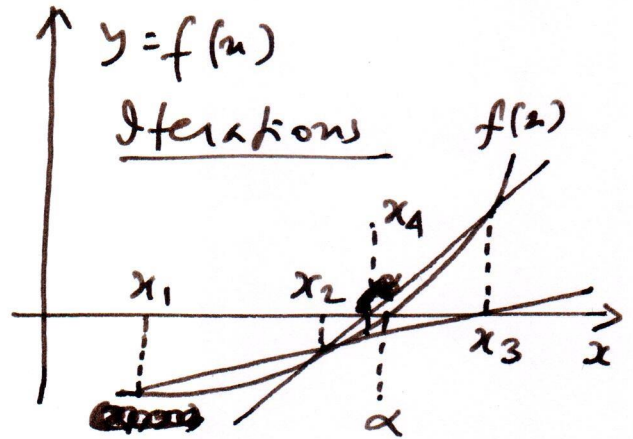 y = f(x)
Iterations
f(x)
x4
x1
x2
x3
x
α